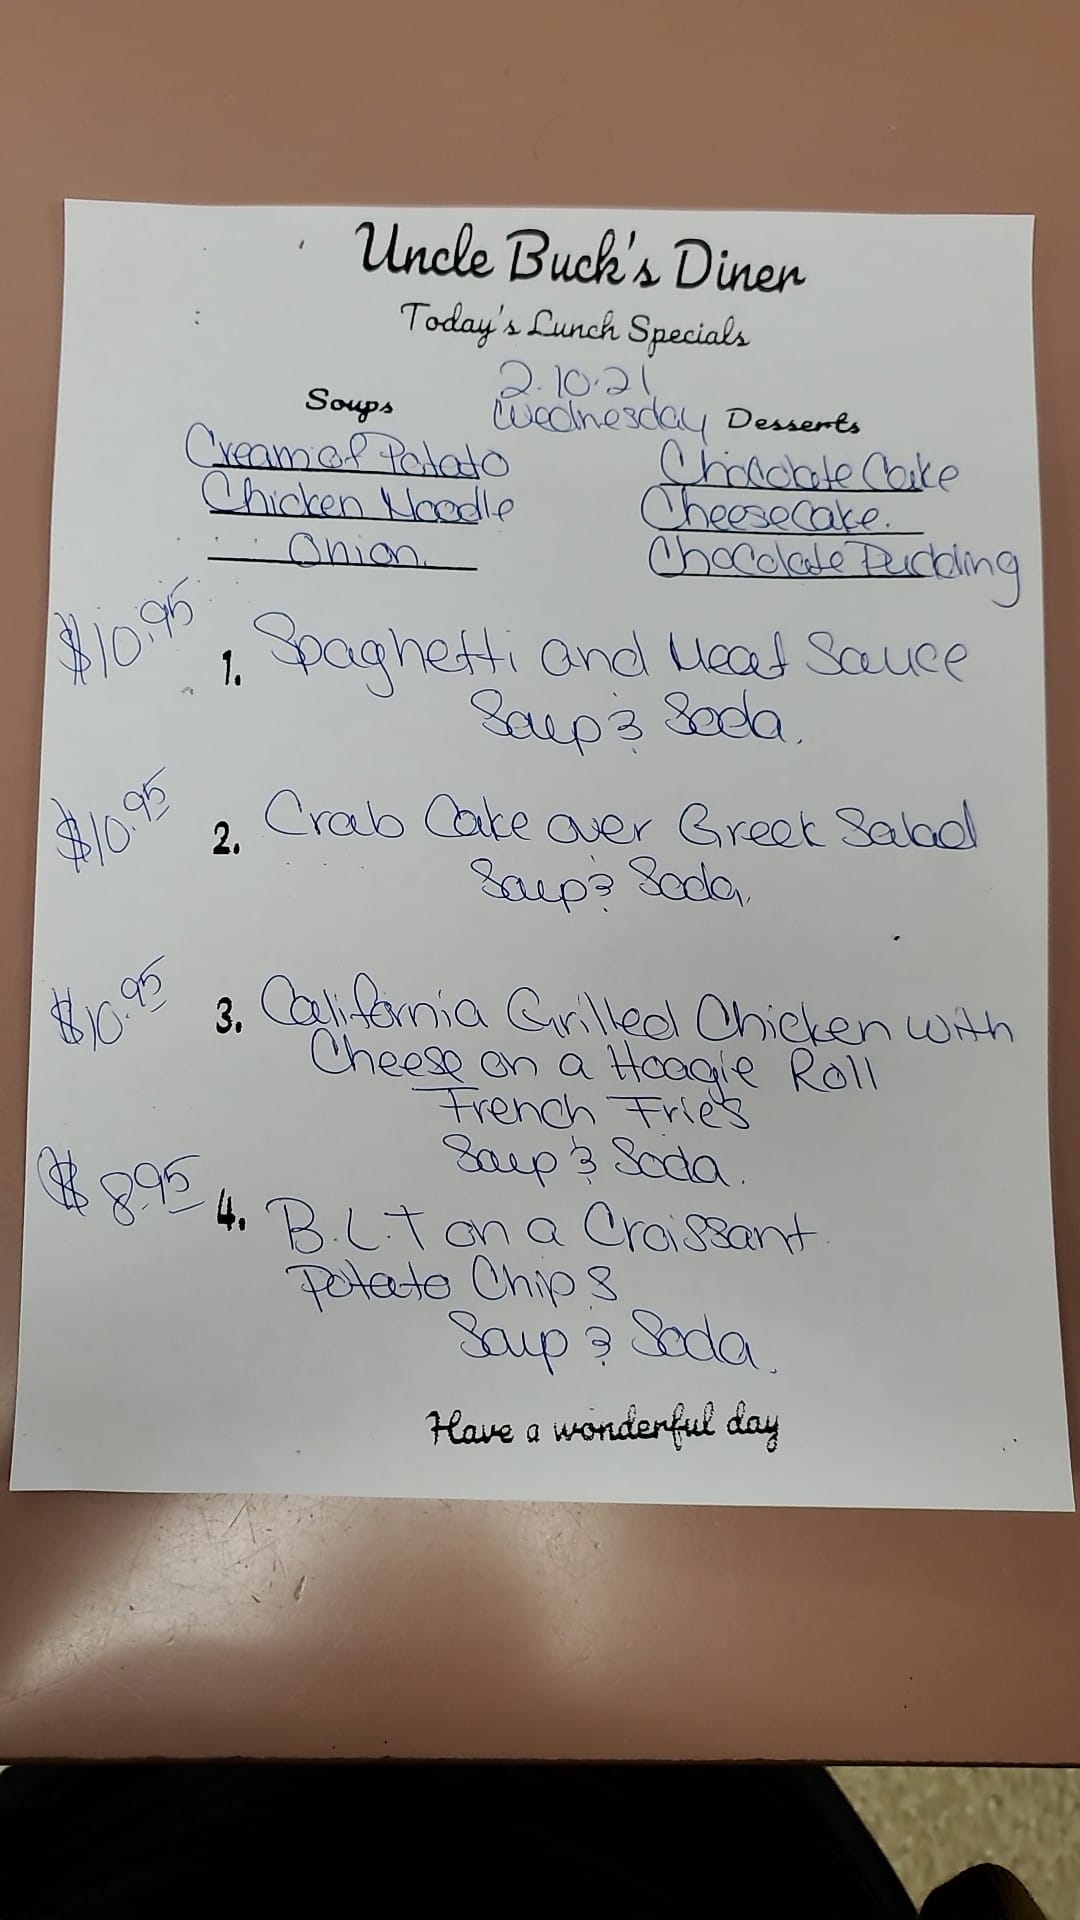 Uncle Buck's Diner
Today's Lunch Specials
2.10.21
Wednesday
Soups
Cream of Potato
Chicken Noodle
Onion.
Desserts
Chocolate Cake
Cheesecake.
Chocolate Pudding
$10.95 1. Spaghetti and Meat Sauce
Soup & Soda.
$10.95 2. Crab Cake over Greek Salad
Soup & Soda.
$10.95 3. California Grilled Chicken with
Cheese on a Hoagie Roll
French Fries
Soup & Soda.
$8.95 4. B.L.T on a Croissant
Potato Chips
Soup & Soda.
Have a wonderful day